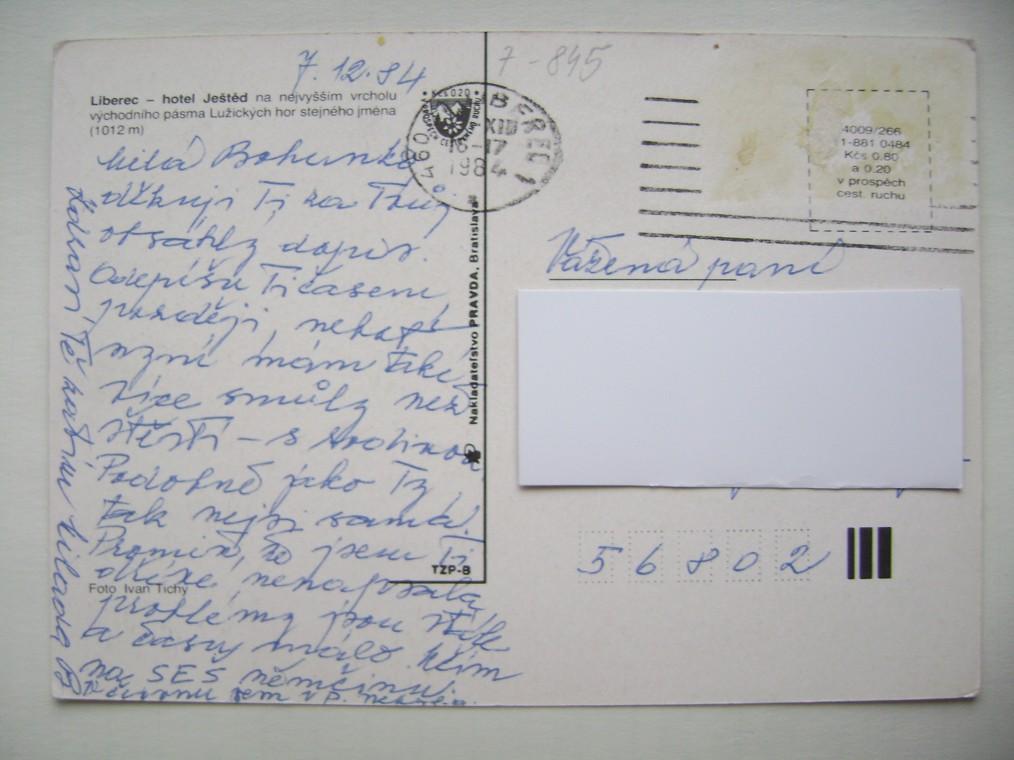 7.12.84
7-845
Liberec – hotel Ještěd na nejvyšším vrcholu
východního pásma Lužických hor stejného jména
(1012 m)
Milá Bohunko
děkuji Ti za Tvůj
obsáhlý dopis.
Odepíšu Ti časem
později, neboť
nyní mám také
více smůly než
štěstí – s rodinou.
Podobně jako Ty,
tak nejsi sama.
Promiň, že jsem Ti
dříve nenapsala,
problémy jsou stále
a času málo. Učím
na SES němčinu.
Zdraví Tě
Foto Ivan Tichý
Nakladateľstvo PRAVDA, Bratislava
TZP-B
460
LIBEREC 1
XII
16-17
1984
4009/266
1-881 0484
Kčs 0.80
a 0.20
v prospěch
cest. ruchu
Vážená paní
56802